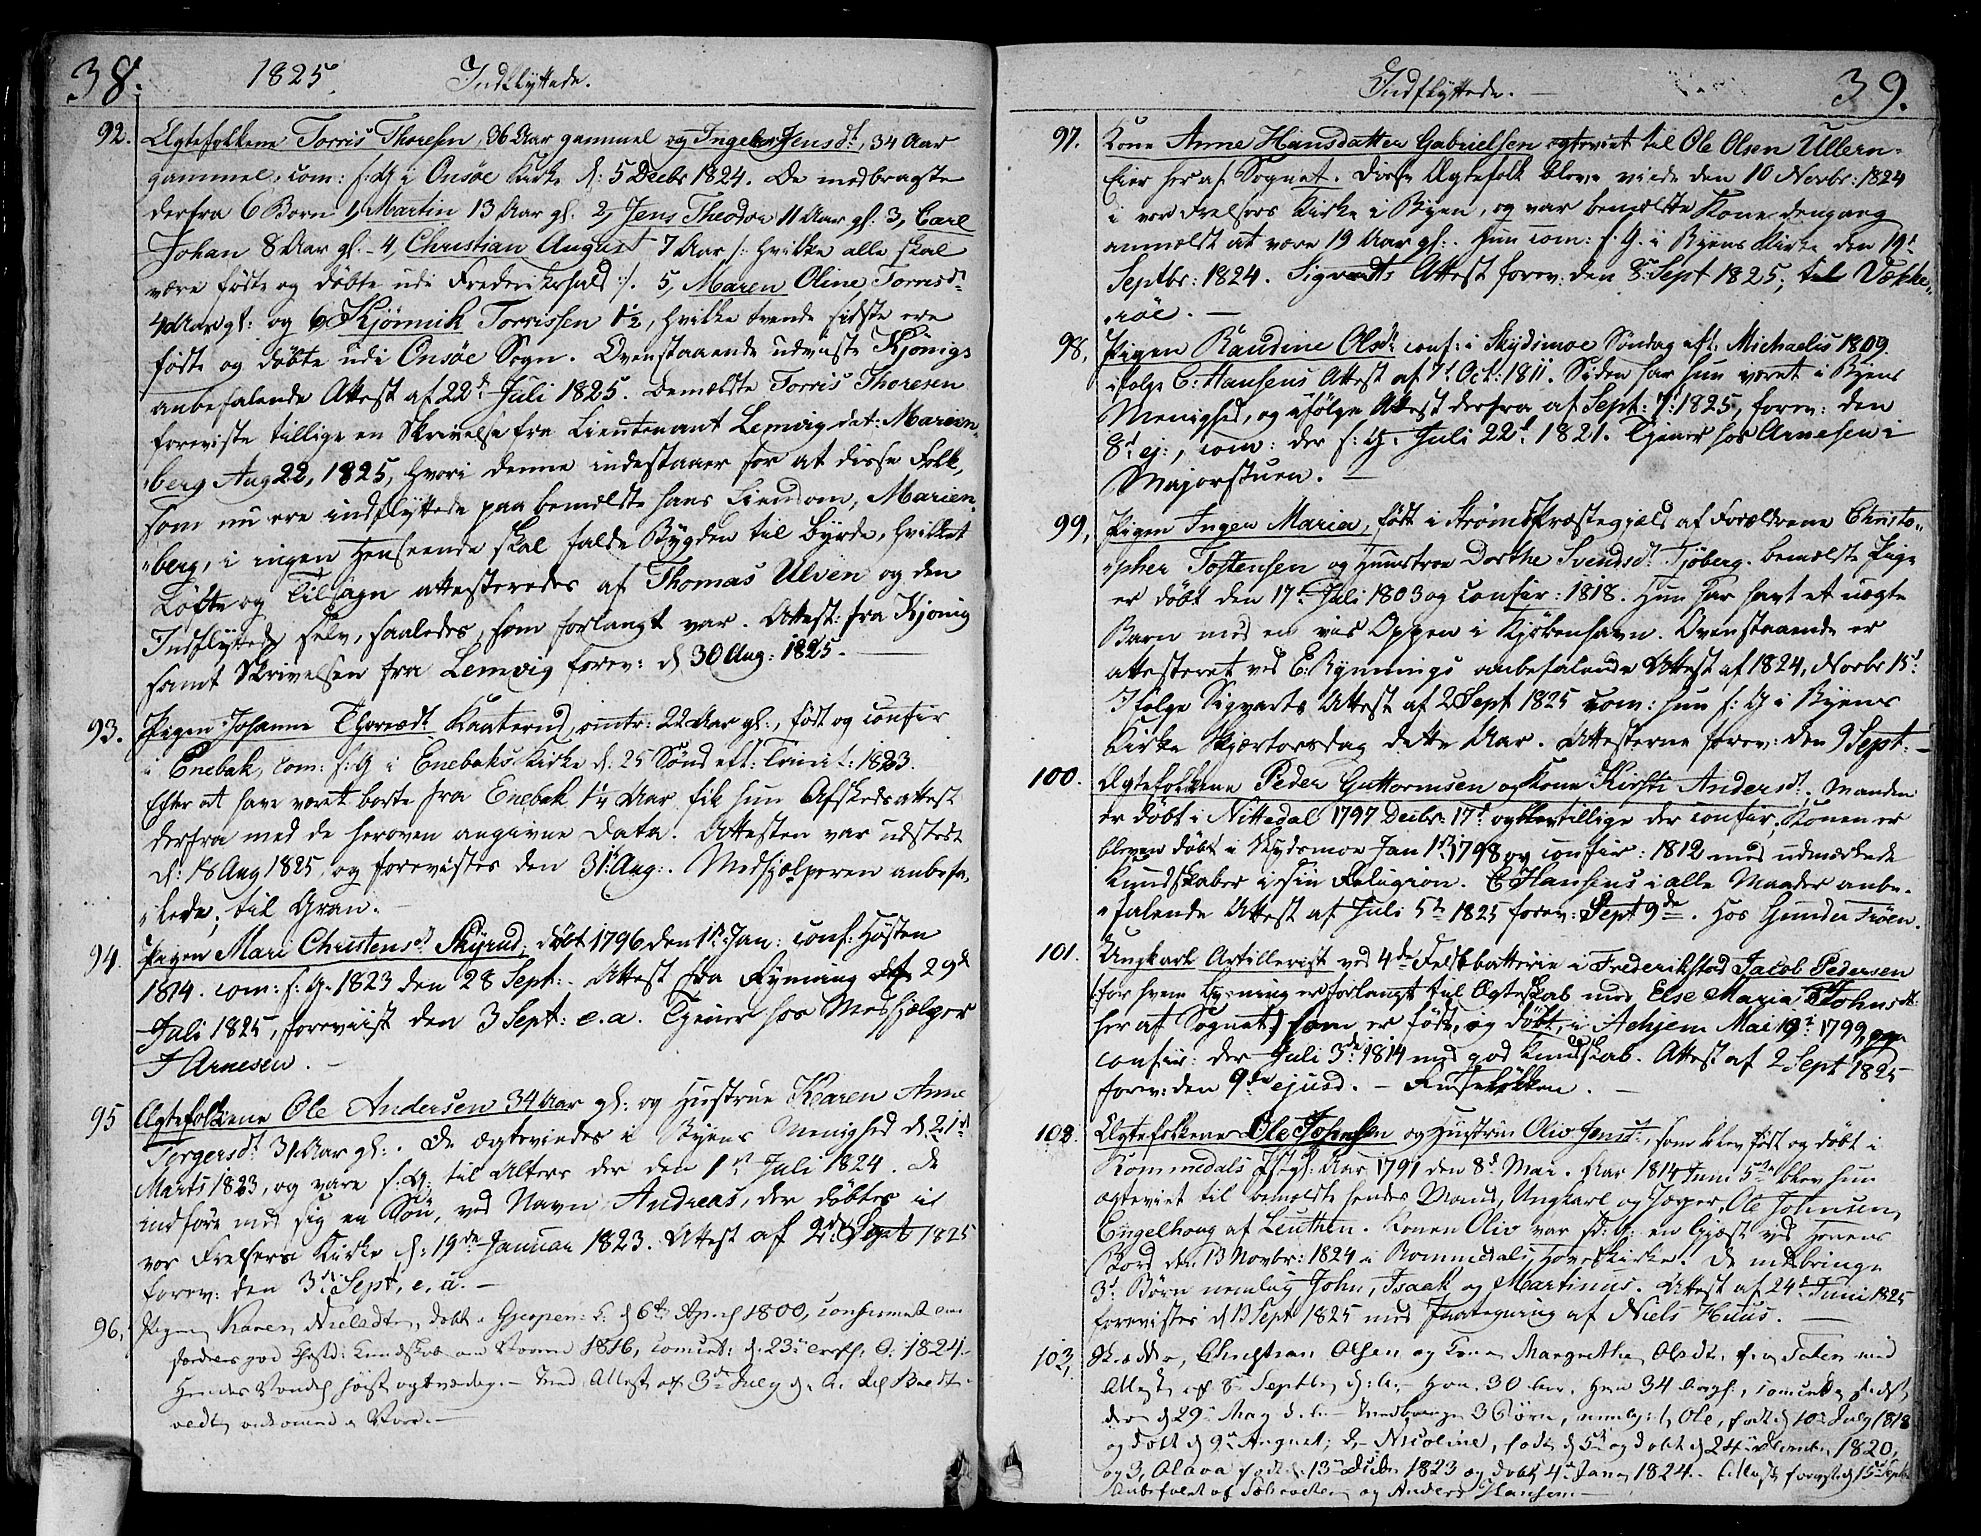 38.
1825.
Indflyttede.
92. Ægtefolkene Torris Thoresen, 36 Aar gammel og Ingeborg Jensdt, 34 Aar
gammel, com: s: G i Onsøe Kirke d: 5 Decbr 1824. De medbragte
derfra 6 Børn 1, Martin 13 Aar gl: 2, Jens Theodor 11 Aar gl: 3, Carl
Johan 8 Aar gl – 4, Christian August 7 Aar /: hvilke alle skal
være fødte og døbte udi Frederikshald :/. 5, Maren Oline Torrisdt
4 Aar gl: og 6, Kjönnik Torrissen 1½, hvilke tvende sidste ere
fødte og døbte udi Onsøe Sogn. Ovenstaaende udviste Kjönigs
anbefalende Attest af 22d Juli 1825. Bemældte Torris Thoresen
foreviste tillige en Skrivelse fra Lieutenant Lemvig dat: Marien-
berg Aug 22, 1825, hvori denne indestaaer for at disse Folk,
som nu ere indflyttede paa bemældte hans Eiendom, Marien-
berg, i ingen Henseende skal falde Bygden til Byrde, hvilket
Løfte og Tilsagn attesteredes af Thomas Ulven og den
Indflyttede selv, saaledes, som forlangt var. Attest: fra Kjönig
samt Skrivelsen fra Lemvig forev: d 30 Aug: 1825.
93. Pigen Johanne Thoresdt Kaaterud, omtr: 22 Aar gl:, født og confir
i Enebak, com: s: G i Enebaks Kirke d: 25 Sönd eft: Trinit: 1823.
Efter at have været borte fra Enebak 1¼ Aar fik hun Afskedsattest
derfra med de heroven angivne Data. Attesten var udstedt
d: 18 Aug 1825, og forevistes den 31 Aug: Medhjælperen anbefa-
lede; til Gran.
94. Pigen Mari Christensdt Skyrud; døbt 1796 den 1st Jan: conf: Høsten
1814. com: s: G. 1823 den 28 Sept:. Attest fra Rynning 29d
Juli 1825, foreviist den 3 Sept: e. a. Tjener hos Medhjelper
Arnesen.
95 Ægtefolkene Ole Andersen 34 Aar gl: og Hustrue Karen Anne
Torgersdt 31 Aar gl:. De ægteviedes i Byens Menighed d. 21d
Marts 1823, og vare s: G: til Alters der den 1st Juli 1824. De
indføre med sig en Søn, ved Navn Andreas, der døbtes i
vor Frelsers Kirke d: 19de Januar 1823. Attest af 2d Sept 1825
forev: den 3d Sept, e. a.
96, Pigen Karen Nielsdtr, døbt d 6te April 1800, confirmeret
god Christd: Kundskab om Vaaren 1816, d. 23 1824.
Med Attest af 3d July
39.
Indflyttede.
97. Kone Anne Hansdatter Gabrielsen ægteviet til Ole Olsen Ullern-
Eier her af Sognet. Disse Ægtefolk bleve viede den 10 Novbr: 1824
i vor Frelsers Kirke i Byen, og var bemældte Kone dengang
anmældt at være 19 Aar gl:. Hun com: s: G. i Byens Kirke den 19d
Septbr: 1824. Sigvardts Attest forev: den 8 Sept 1825; til Vække-
röe.
98, Pigen Randine Olsdt: conf: i Skydsmoe Söndag eft: Michaelis 1809.
ifølge C: Hansens Attest af 7d Oct: 1811. Siden har hun været i Byens
Menighed, og ifølge Attest derfra af Sept: 7: 1825, forev: den
8d ej:, com: der s: G. Juli 22d 1821. Tjener hos Arnesen i
Majorstuen.
99, Pigen Inger Maria, født i Strøms Præstegjæld af Forældrene Christo-
pher Tostensen og Hustroe Dorthe Svendsdt Sjöberg. bemældte Pige
er døbt den 17d Juli 1803 og confir: 1818. Hun har havt et uægte
Barn med en vis Oppen i Kjöbenhavn. Ovenstaaende er
attesteret ved E. Rynnings anbefalende Attest af 1824, Novbr 15d
Ifølge Sigvarts Attest af 2 Sept 1825 com: hun s: G i Byens
Kirke Skjærtorsdag dette Aar. Attesterne forev: den 9 Sept:
100. Ægtefolkene Peder Guttormsen og Kone Kirsti Andersdt. Manden
er døbt i Nittedal 1797 Decbr: 17d og tillige der confir, Konen er
bleven døbt i Skydsmoe Jan 1st 1798 og confir: 1812 med udmærkede
Kundskaber i sin Religion. C Hansens i alle Maader anbe-
falende Attest af Juli 5te 1825 forev: Sept 9de. Hos Gunder Fröen.
101. Ungkarl Artillerist ved 4de Feldtbatterie i Frederikstad Jacob Pedersen
(for hvem Lysning er forlangt til Ægteskab med Else Maria Johnsdt
her af Sognet) som er født, og döbt, i Achjem Mai 19d 1799, og
confir: der Juli 3de 1814 med god Kundskab. Attest af 2 Sept 1825
forev: den 9de ejusd. – Fruseløkken.
102. Ægtefolkene Ole Johnsen og Hustrue Oliv Jensdt, som blev født og døbt i
Rommedals Pstgl: Aar 1791 den 8d Mai. Aar 1814 Juni 5te blev hun
ægteviet til bemældte hendes Mand, Ungkarl og Jæger, Ole Johnsen,
Engelhaug af Leuthen. Konen Oliv var sd: G: en Gjæst ved Herrens
Bord den 13 Novbr: 1824 i Rommedals Hovedkirke. De medbringe
3d Børn nemlig, John, Isaak og Martinus. Attest af 24d Juni 1825
forevistes d 13 Sept 1825 med Paategning af Niels Huus.
103, Skrædder, Christian Olsen og Kone Margrethe Olsdtr fra Toten med
Attest af 8 Septbr d. A. – Han 30 Aar. Hun 34 Aar gl:,
der d 29 May d. A. – Medbringer 3 Börn, nemlig: 1, Ole, født d 10 July 1818
og døbt d 9 August; 2, Nicoline, født d 5te og døbt d 24 December 1820,
og 3, Olava født d. 13 Decbr 1823 og døbt 4d Jan 1824. Attest forevist d 15d Septr
Anbefalet af og Anders Hansen.